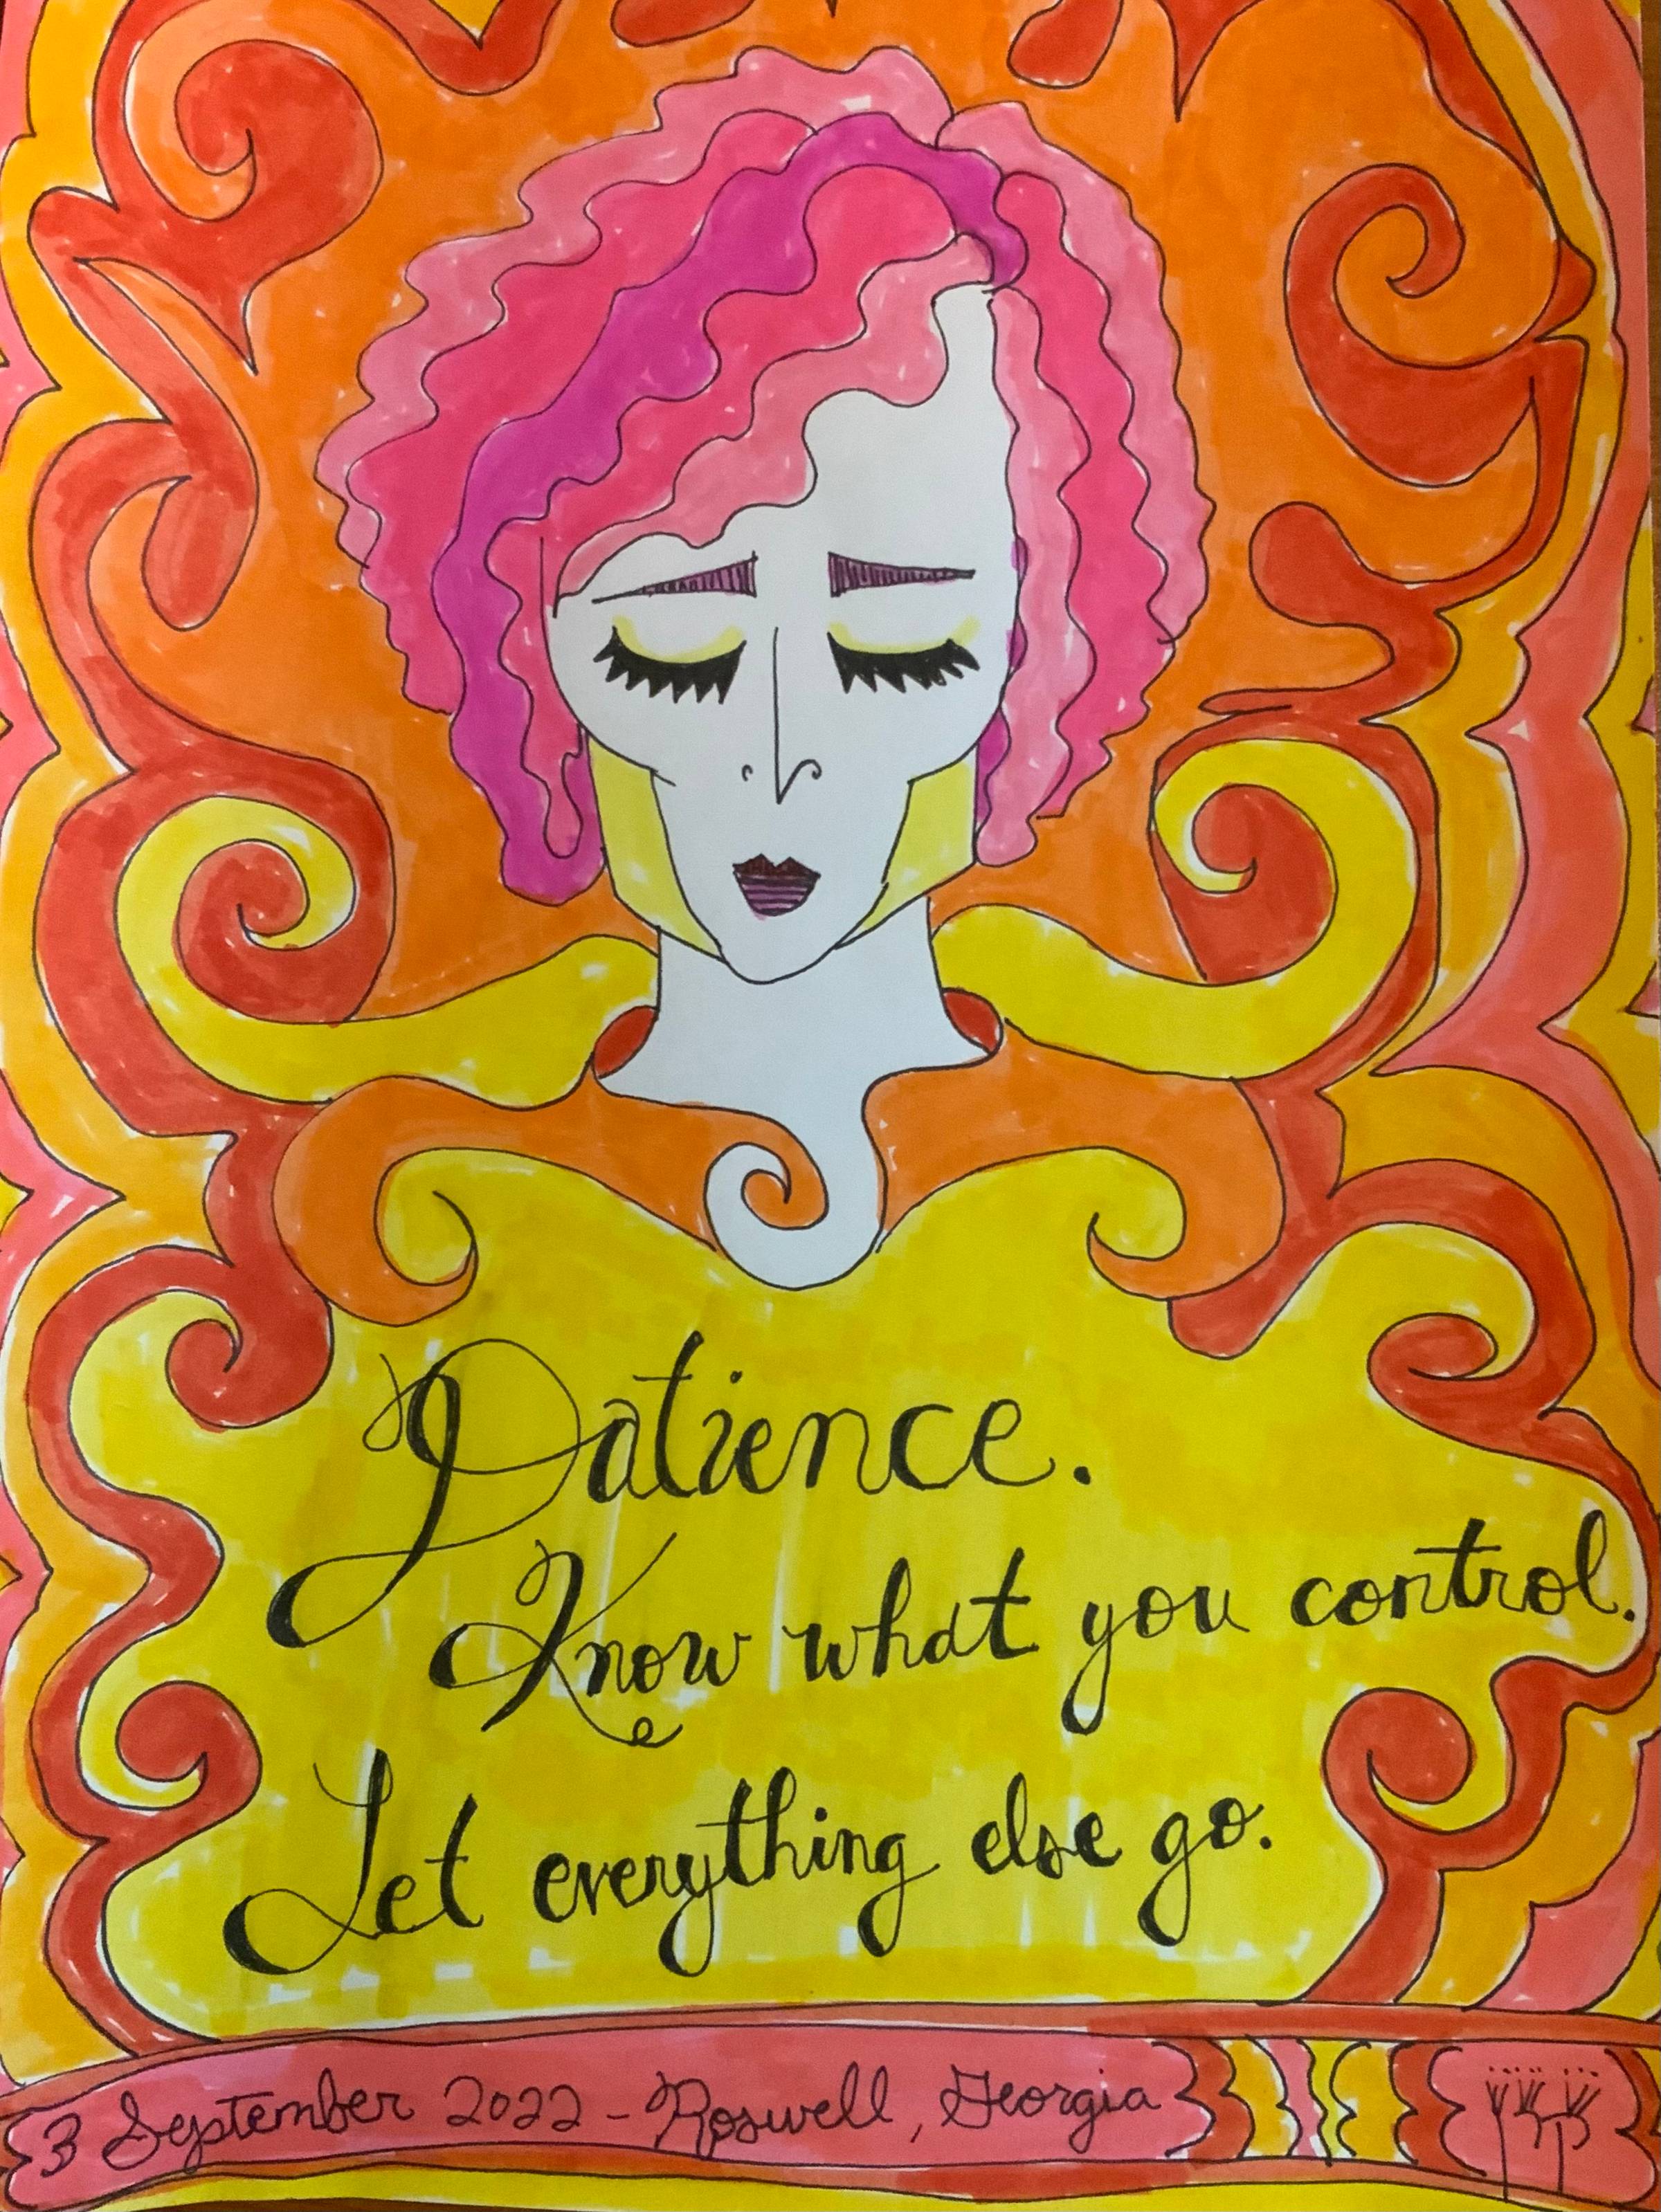 Patience.
Know what you control.
Let everything else go.
3 September 2022 - Roswell, Georgia